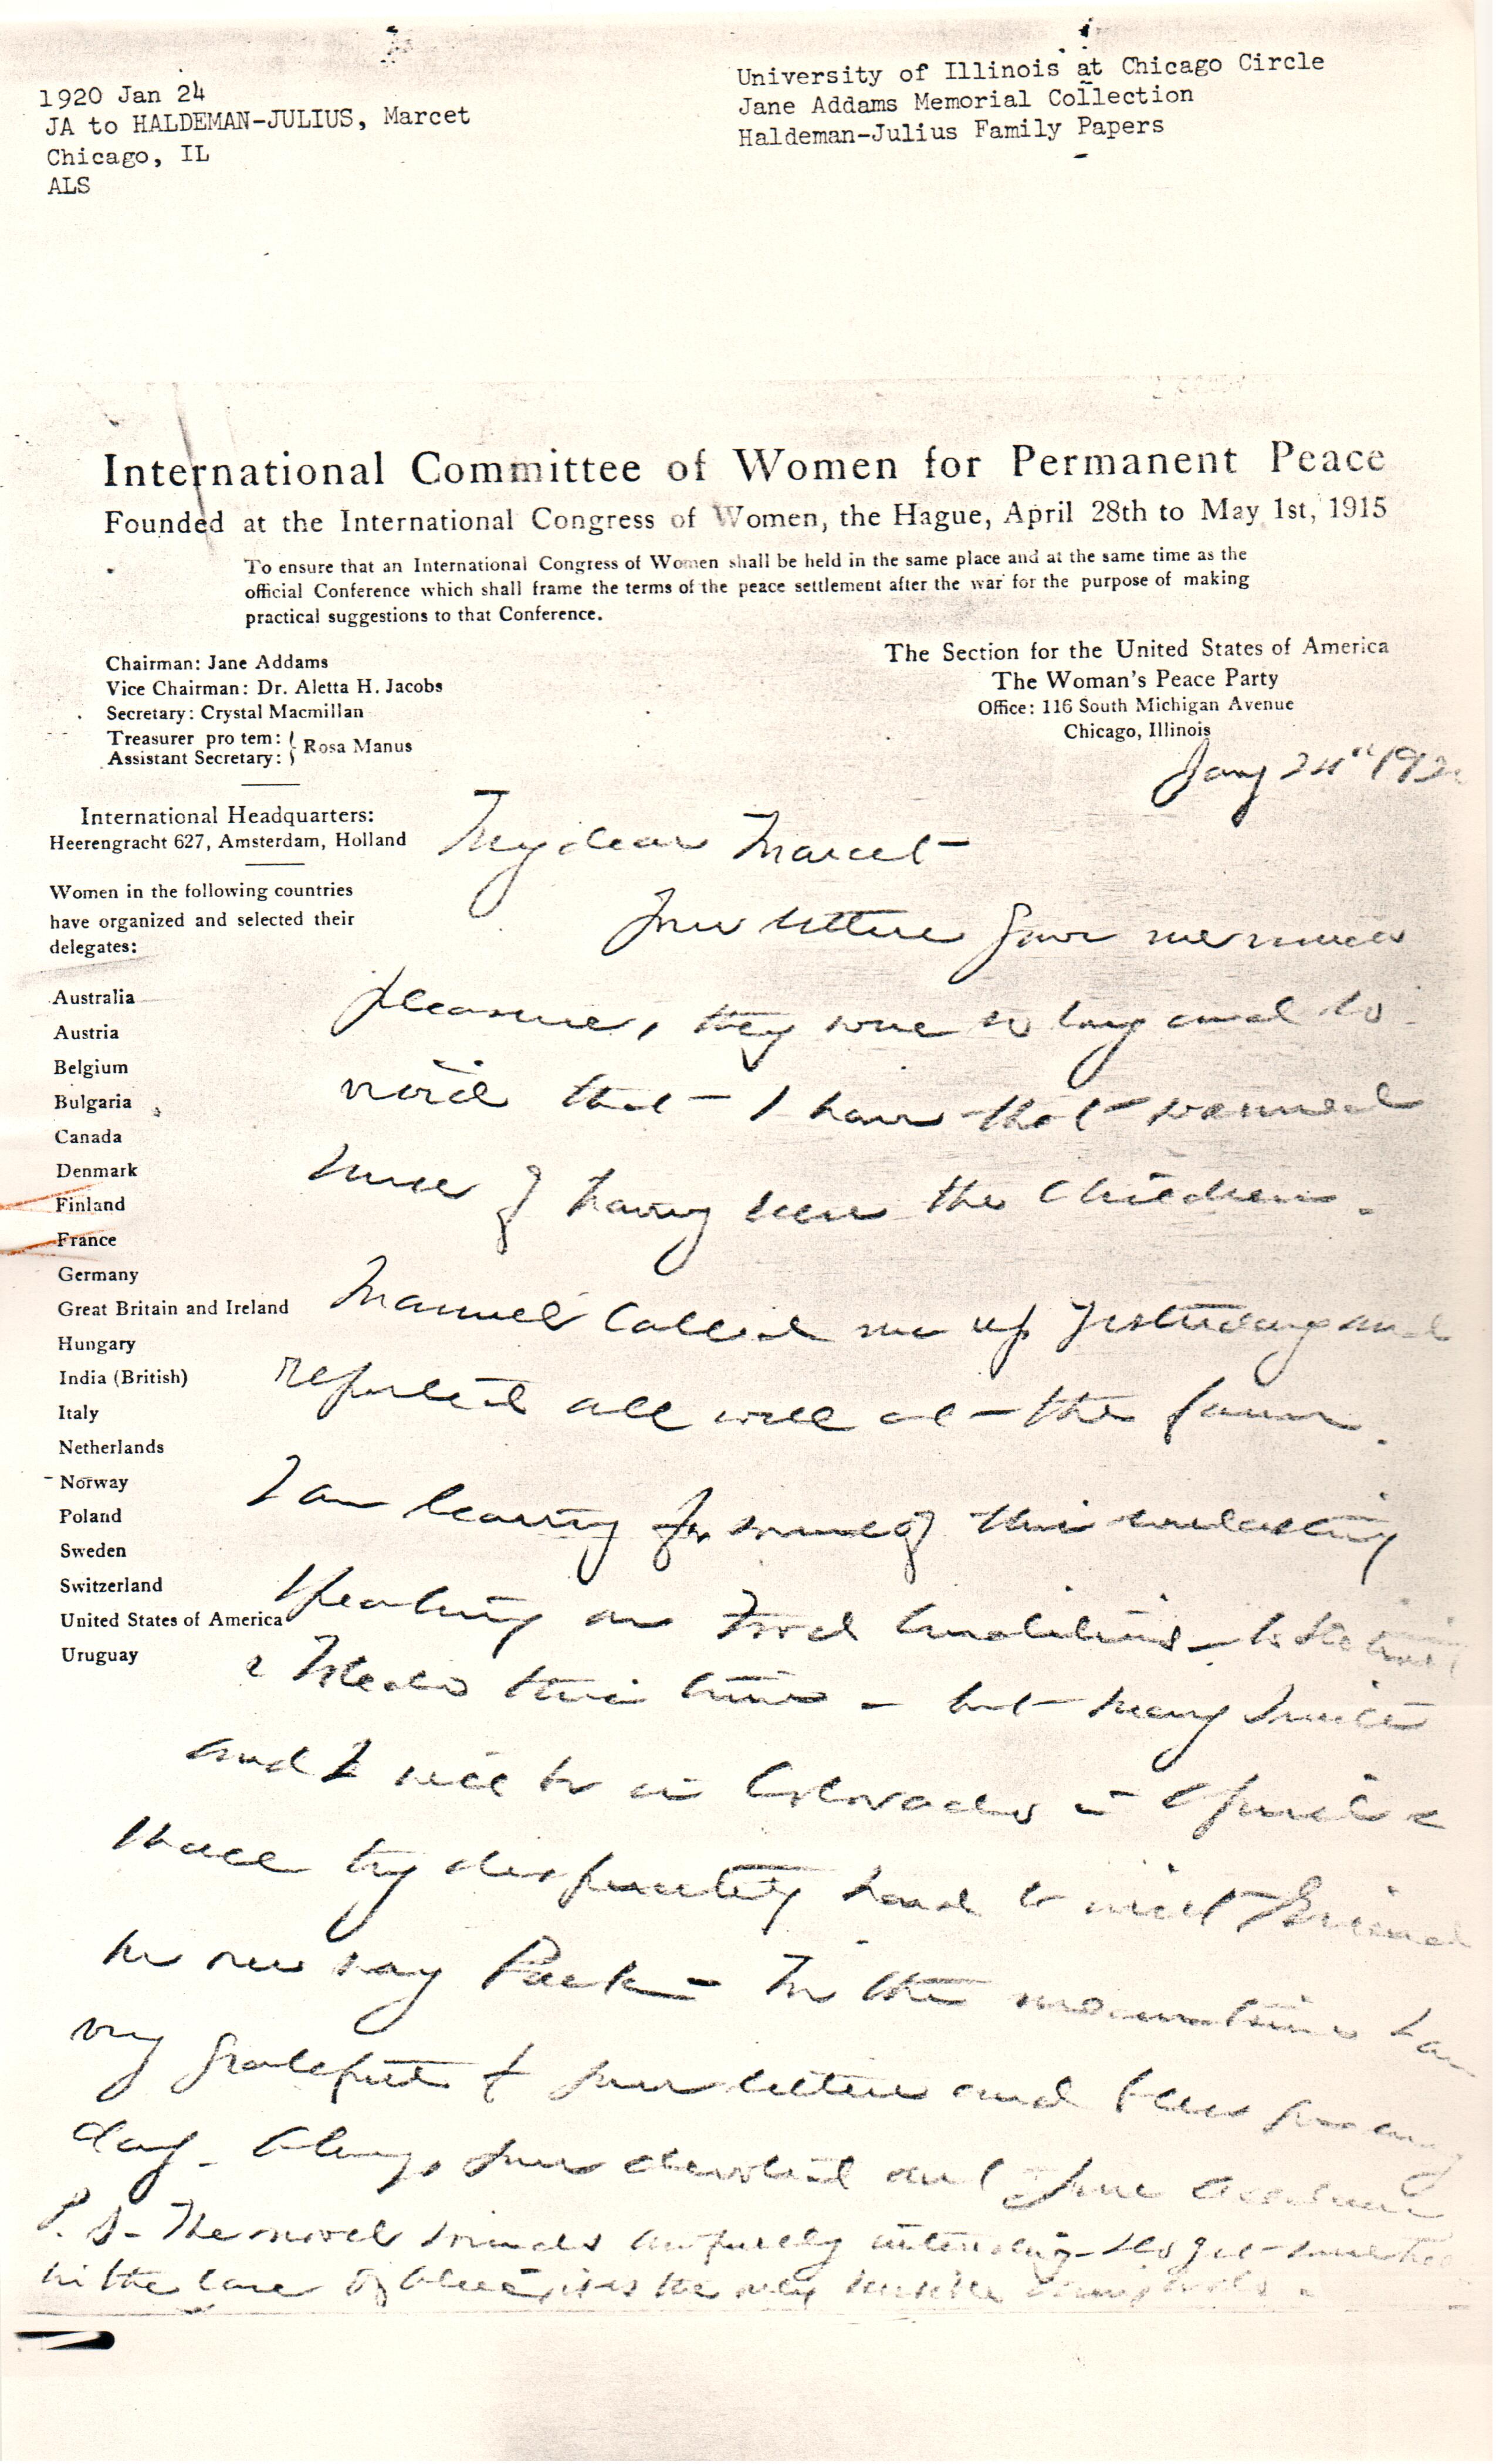 1920 Jan 24
JA to HALDEMAN-JULIUS, Marcet
Chicago, IL
ALS
University of Illinois at Chicago Circle
Jane Addams Memorial Collection
Haldeman-Julius Family Papers
International Committee of Women for Permanent Peace
Founded at the International Congress of Women, the Hague, April 28th to May 1st, 1915
To ensure that an International Congress of Women shall be held in the same place and at the same time as the
official Conference which shall frame the terms of the peace settlement after the war for the purpose of making
practical suggestions to that Conference.
Chairman: Jane Addams
Vice Chairman: Dr. Aletta H. Jacobs
Secretary: Crystal Macmillan
Treasurer pro tem:
Assistant Secretary:
Rosa Manus
The Section for the United States of America
The Woman's Peace Party
Office: 116 South Michigan Avenue
Chicago, Illinois
International Headquarters:
Heerengracht 627, Amsterdam, Holland
Women in the following countries
have organized and selected their
delegates:
Australia
Austria
Belgium
Bulgaria
Canada
Denmark
Finland
France
Germany
Great Britain and Ireland
Hungary
India (British)
Italy
Netherlands
Norway
Poland
Sweden
Switzerland
United States of America
Uruguay
Jany 24" 192
My dear Marcet –
Your letters gave me much
pleasure, they were so long and so
vivid that – I have that warmed
sense of having seen the children.
Manuel called me up yesterday and
reported all well at – the farm.
I am leaving for some of this everlasting
speaking on Food Conditions –
this time – but many
and I will be in Colorado in April &
shall try desperately hard to visit Girard
on my way Back – In the meantime I am
very grateful for your letters and bless you every
day. Always your devoted aunt Jane Addams
P.S – The novel sounds awfully interesting
in the